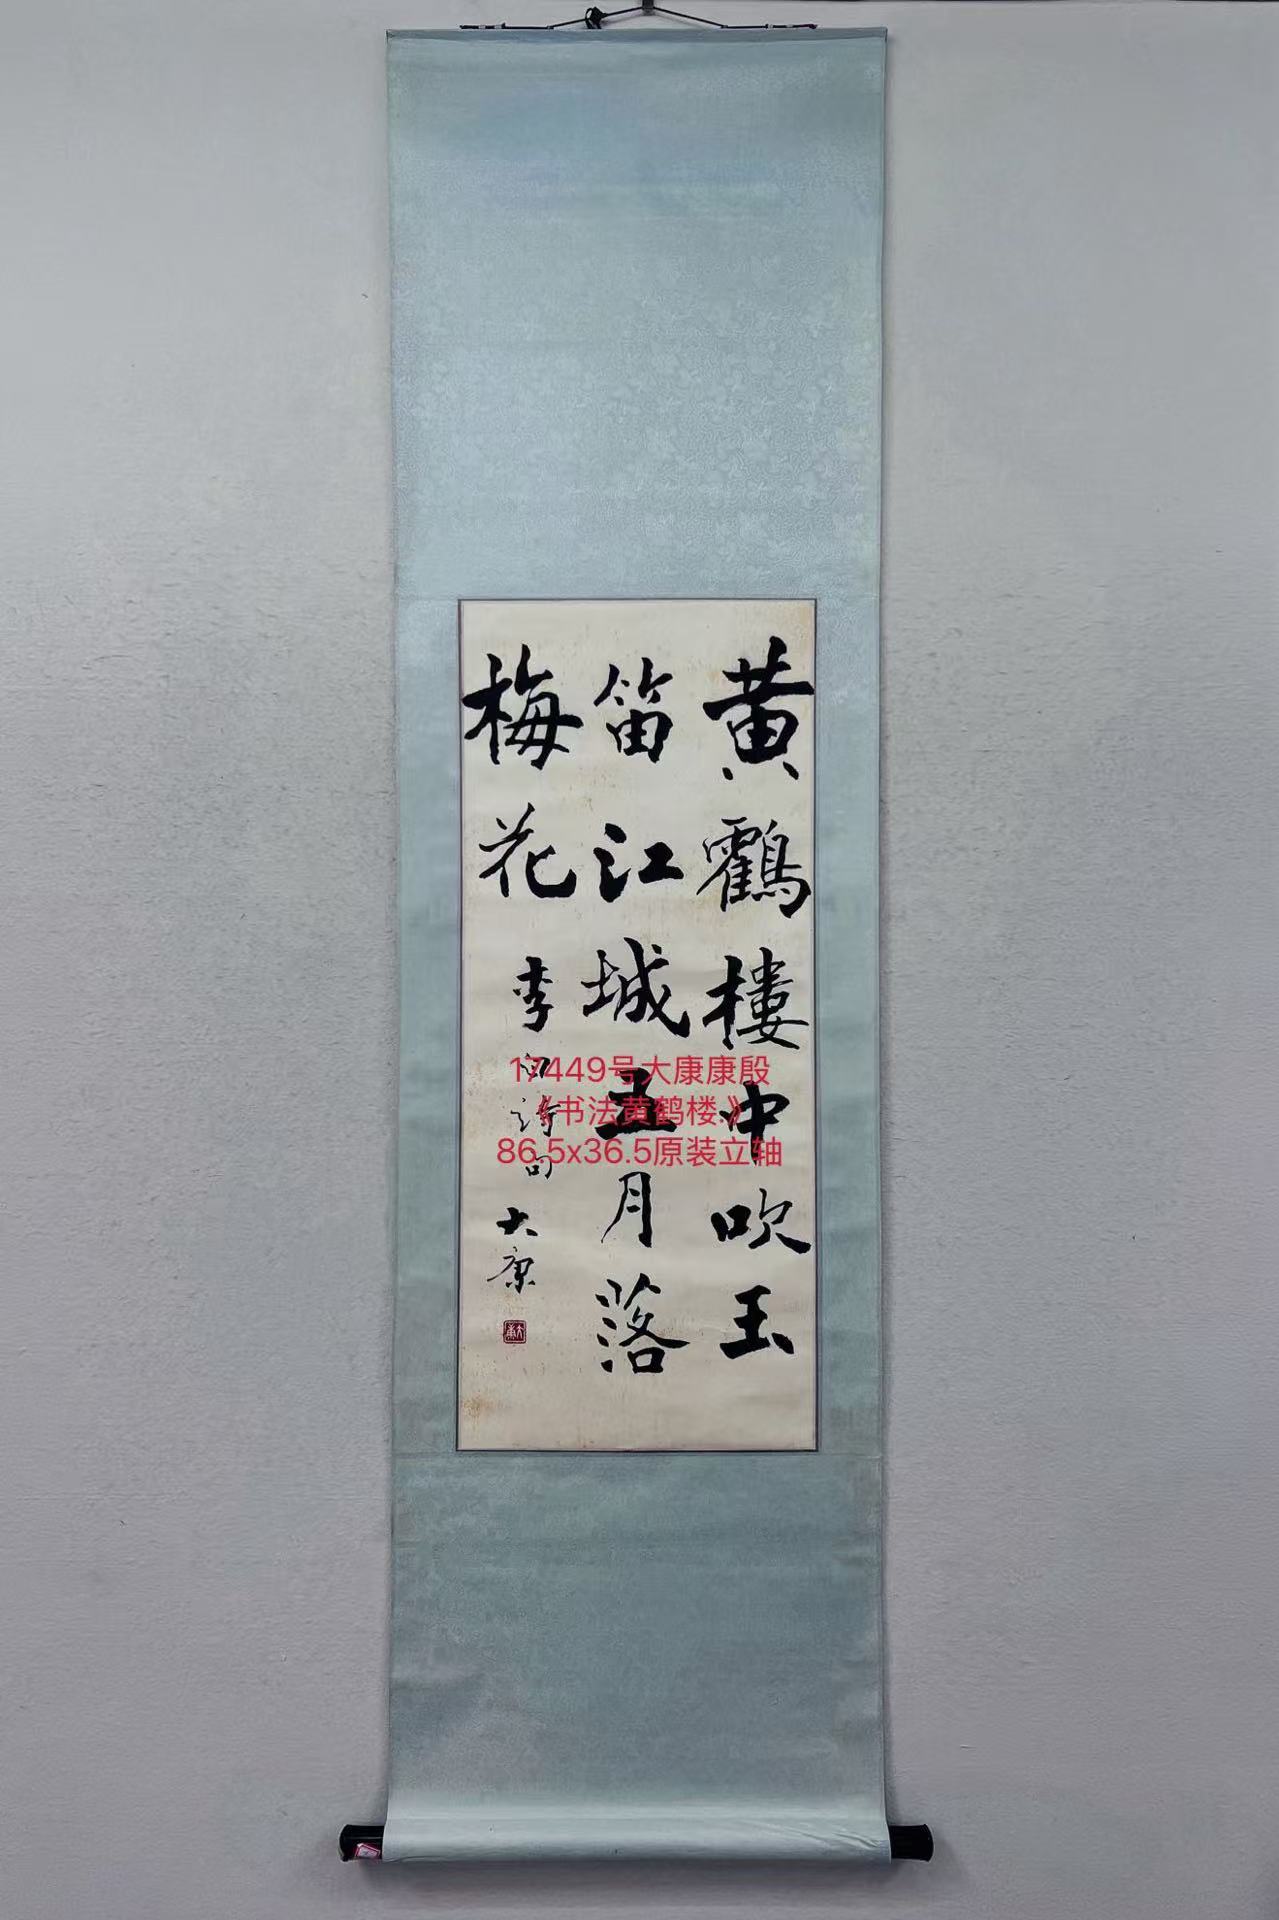 黄鶴樓中吹玉
笛江城五月落
梅花 李白詩句 大康
大康
17449号大康康殷
《书法黄鹤楼》
86.5x36.5原装立轴